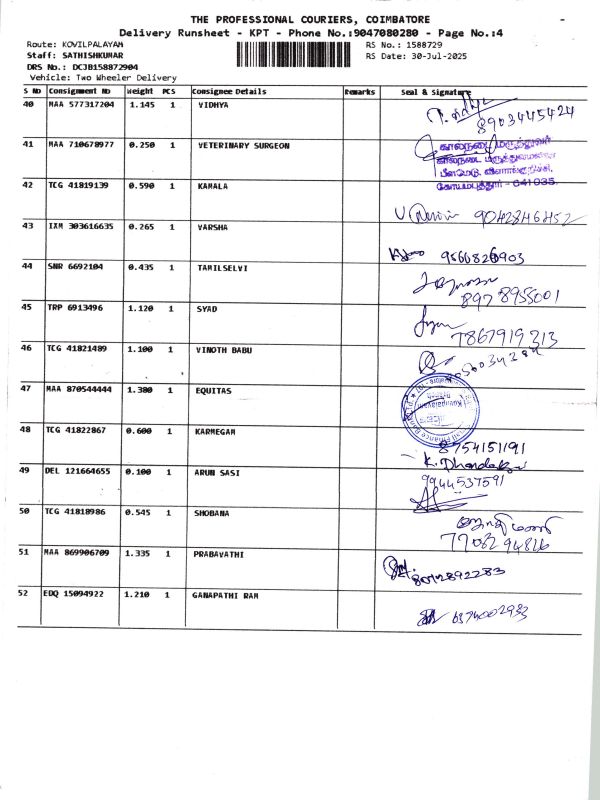 THE PROFESSIONAL COURIERS, COIMBATORE
Delivery Runsheet - KPT - Phone No.:9047080280 - Page No.:4
Route: KOVILPALAYAM RS No.: 1588729
Staff: SATHISHKUMAR RS Date: 30-Jul-2025
DRS No.: DCJB158872904
Vehicle: Two Wheeler Delivery
S No Consignment No Weight PCS Consignee Details Remarks Seal & Signature
40 MAA 577317204 1.145 1 VIDHYA
8903445424
41 MAA 710678977 0.250 1 VETERINARY SURGEON
கால்நடை மருத்துவர்
கால்நடை மருத்துவமனை
கோயமபுத்தூர் - 641035.
42 TCG 41819139 0.590 1 KAMALA
9042846452
43 IXM 303616635 0.265 1 VARSHA
9566826903
44 SNR 6692104 0.435 1 TAMILSELVI
897 8955001
45 TRP 6913496 1.120 1 SYAD
7867919213
46 TCG 41821489 1.100 1 VINOTH BABU
47 MAA 870544444 1.380 1 EQUITAS
48 TCG 41822867 0.600 1 KARMEGAM
8754151191
49 DEL 121664655 0.100 1 ARUN SASI
9944537591
50 TCG 41818986 0.545 1 SHOBANA
77082 94816
51 MAA 869906709 1.335 1 PRABAVATHI
8072892283
52 EDQ 15094922 1.210 1 GANAPATHI RAM
6374002933